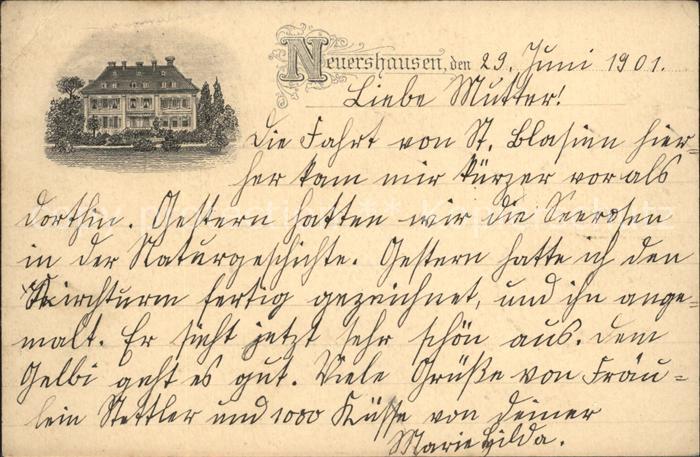 Neuershausen, den 29. Juni 1901.
Liebe Mutter!
Die Fahrt von St. Blasien hier=
her kam mir kürzer vor als
dorthin. Gestern hatten wir die Seerosen
in der Naturgeschichte. Gestern hatte ich den
Kirchturm fertig gezeichnet, und ihn ange=
malt. Er sieht jetzt sehr schön aus. Dem
Gelbi geht es gut. Viele Grüße von Fräu=
lein Stettler und 1000 Küsse von Deiner
Marie Hilda.